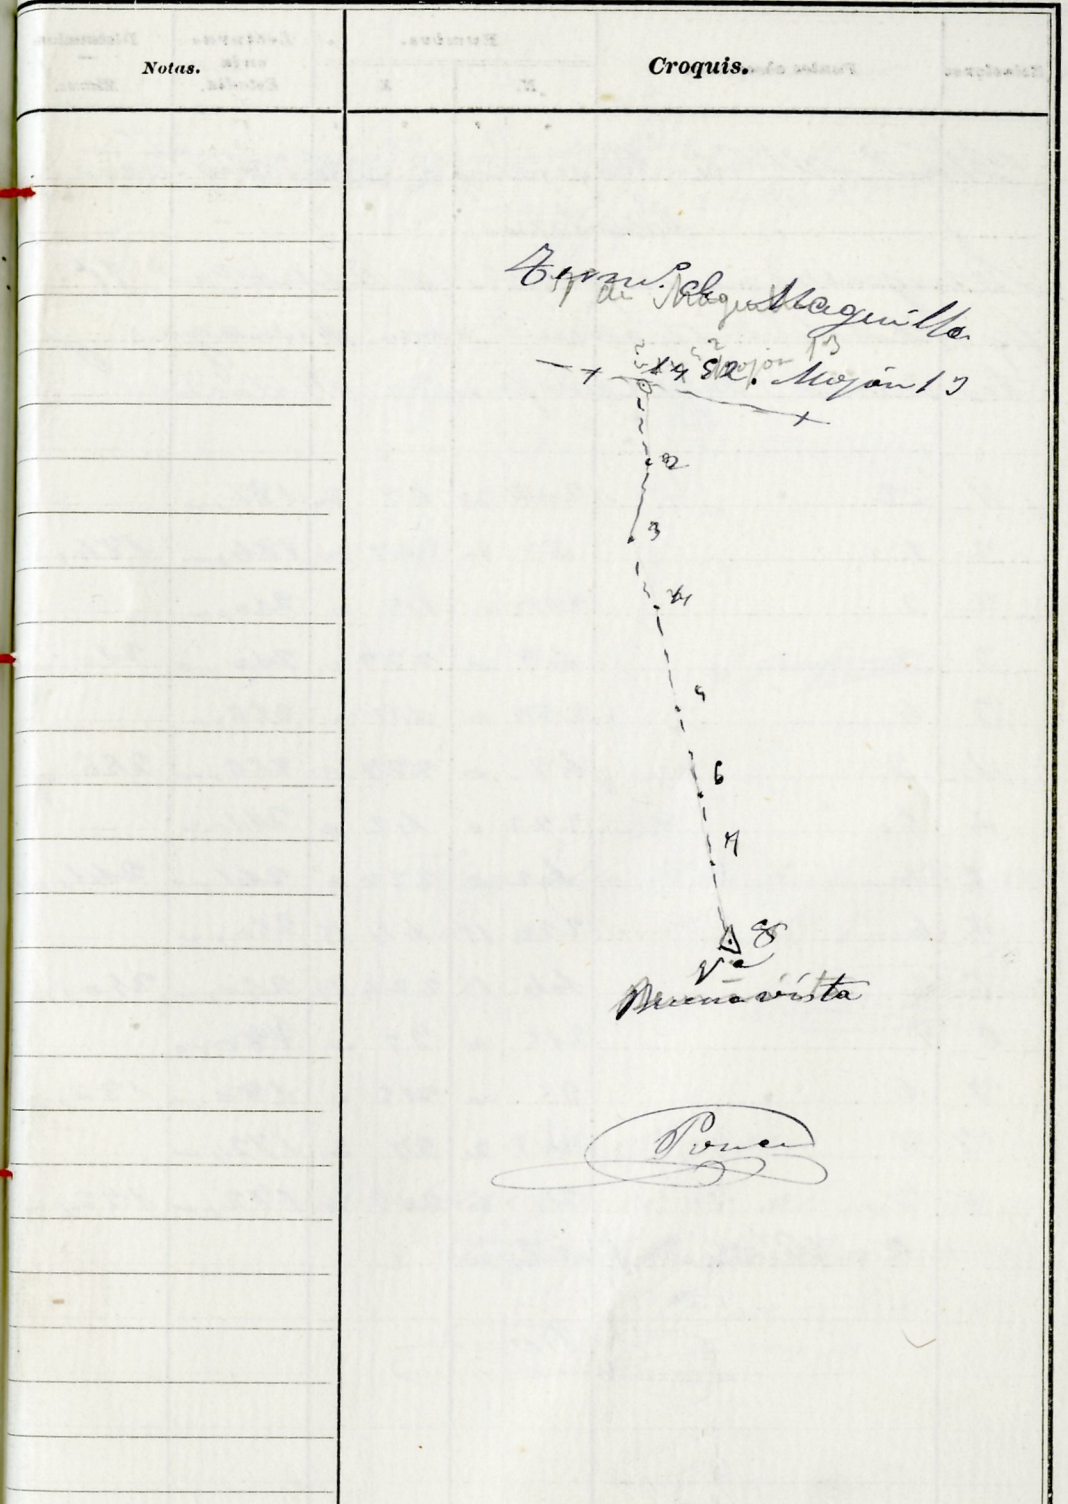 Notas.
Croquis.
Term.º de Maguilla
Mojón 13
2
3
4
5
6
7
8
Vª
Buenavista
Ponce